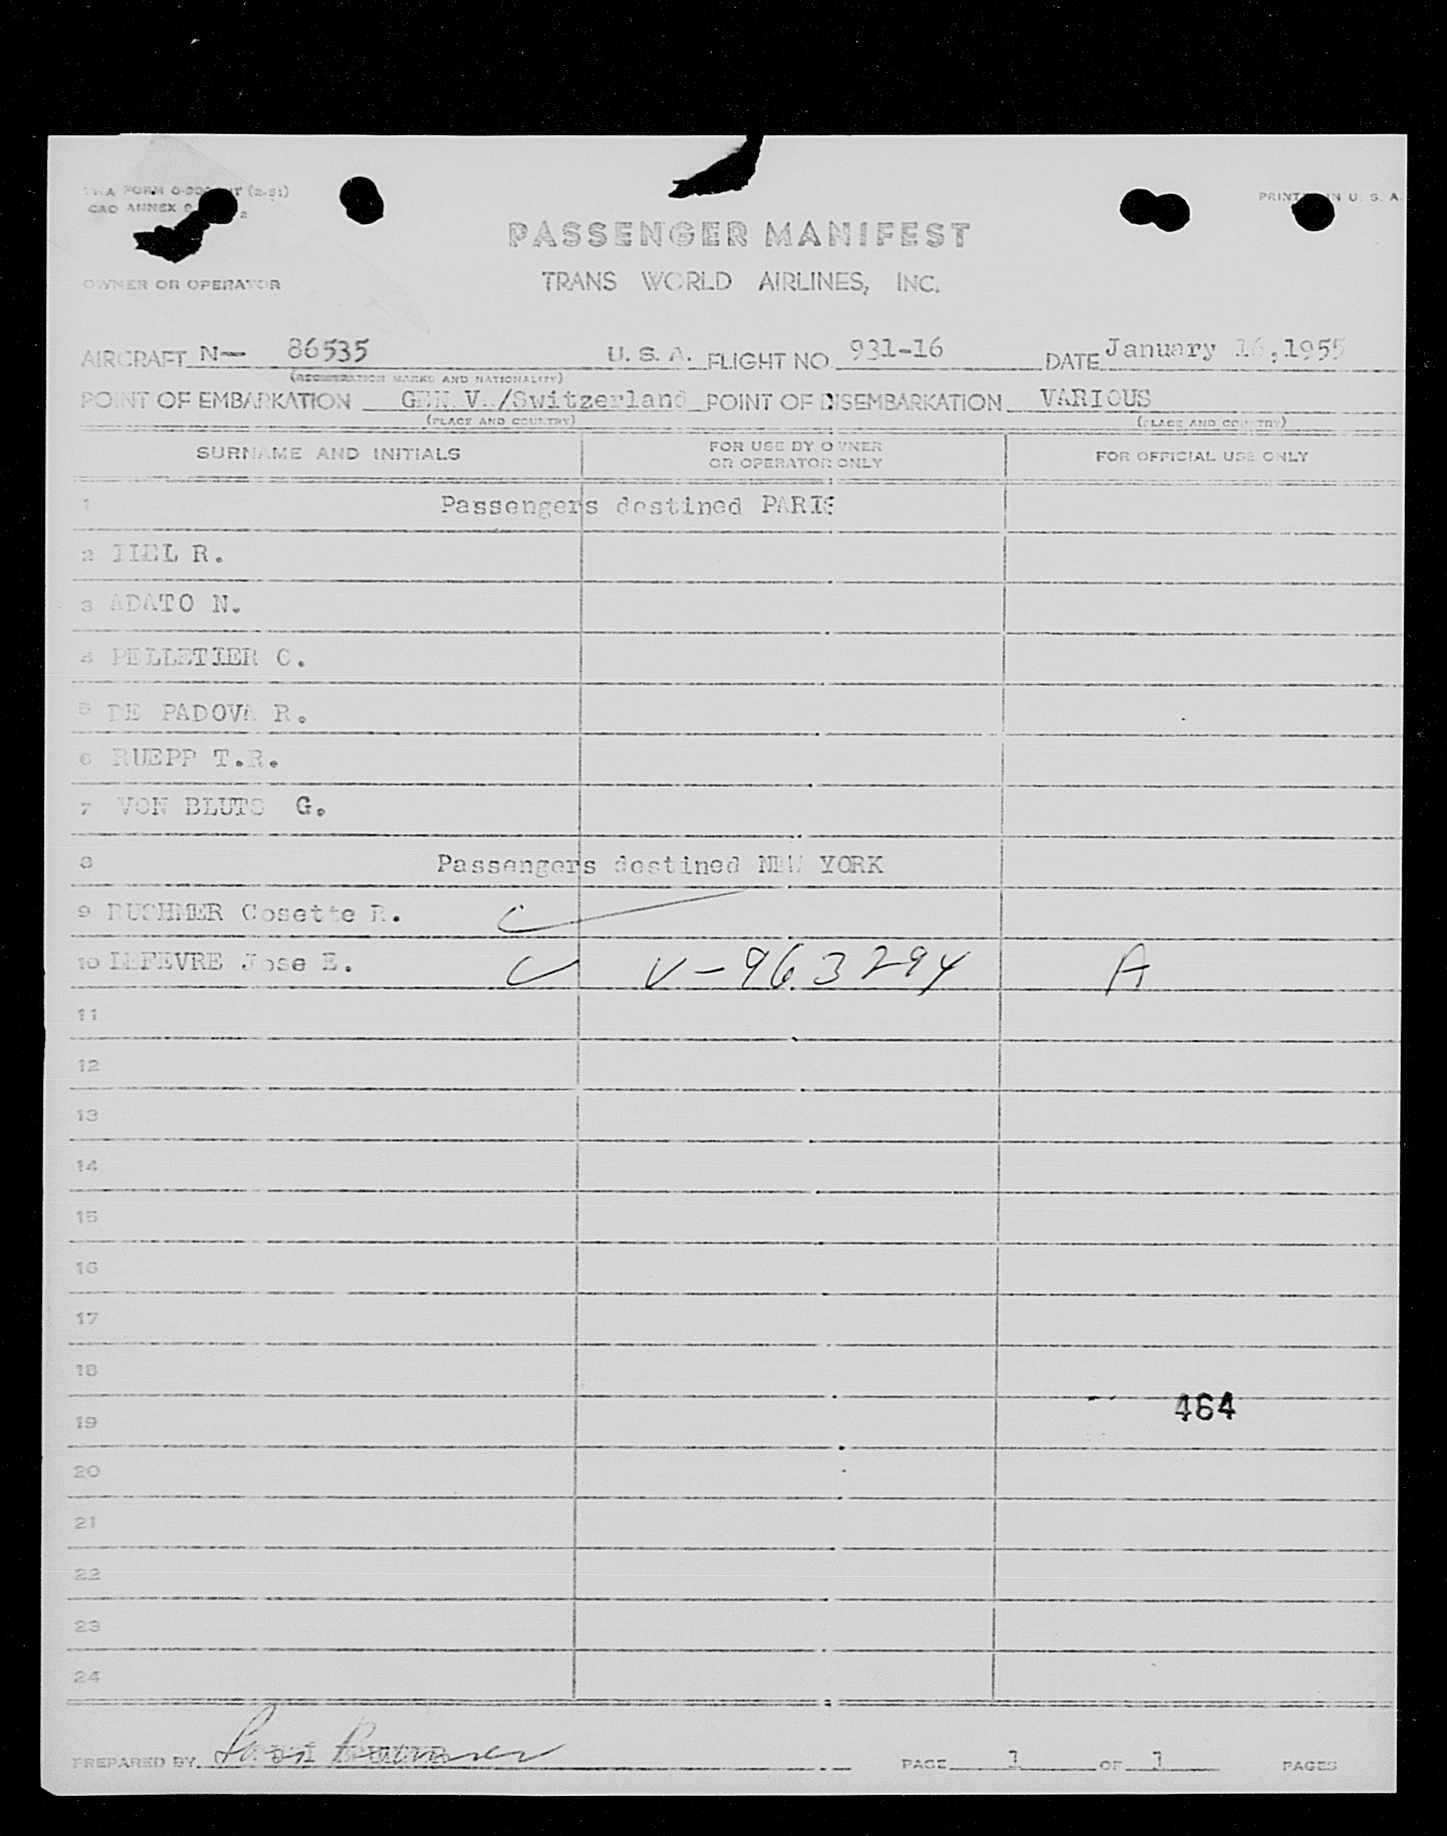 TWA FORM
PRINTED IN U. S. A.
CAO ANNEX 9
PASSENGER MANIFEST
OWNER OR OPERATOR
TRANS WORLD AIRLINES, INC.
AIRCRAFT N— 86535 U. S. A. FLIGHT NO. 931-16 DATE January 16,1955
(REGISTRATION MARKS AND NATIONALITY)
POINT OF EMBARKATION GENEVA/Switzerland POINT OF DISEMBARKATION VARIOUS
(PLACE AND COUNTRY) (PLACE AND COUNTRY)
SURNAME AND INITIALS FOR USE BY OWNER OR OPERATOR ONLY FOR OFFICIAL USE ONLY
1 Passengers destined PARIS
2 R.
3 ADATO N.
4 PELLETIER C.
5 DE PADOVA R.
6 RUEPP T.R.
7 VON G.
8 Passengers destined NEW YORK
9 Cosette R.
10 LEFEVRE Jose E. V-963294 A
11
12
13
14
15
16
17
18
19 464
20
21
22
23
24
PREPARED BY PAGE 1 OF 1 PAGES